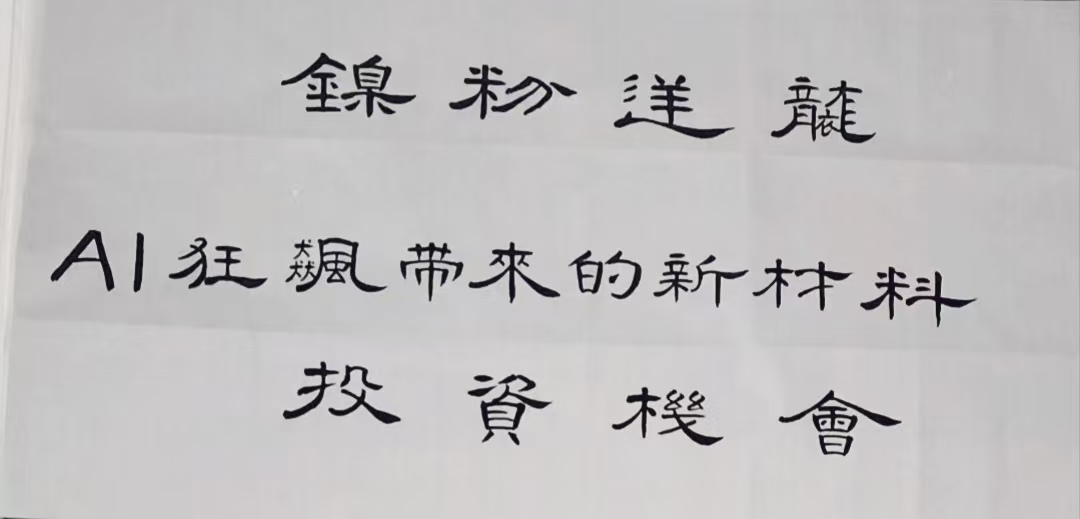 鎳粉逆襲
AI狂飆帶來的新材料
投資機會